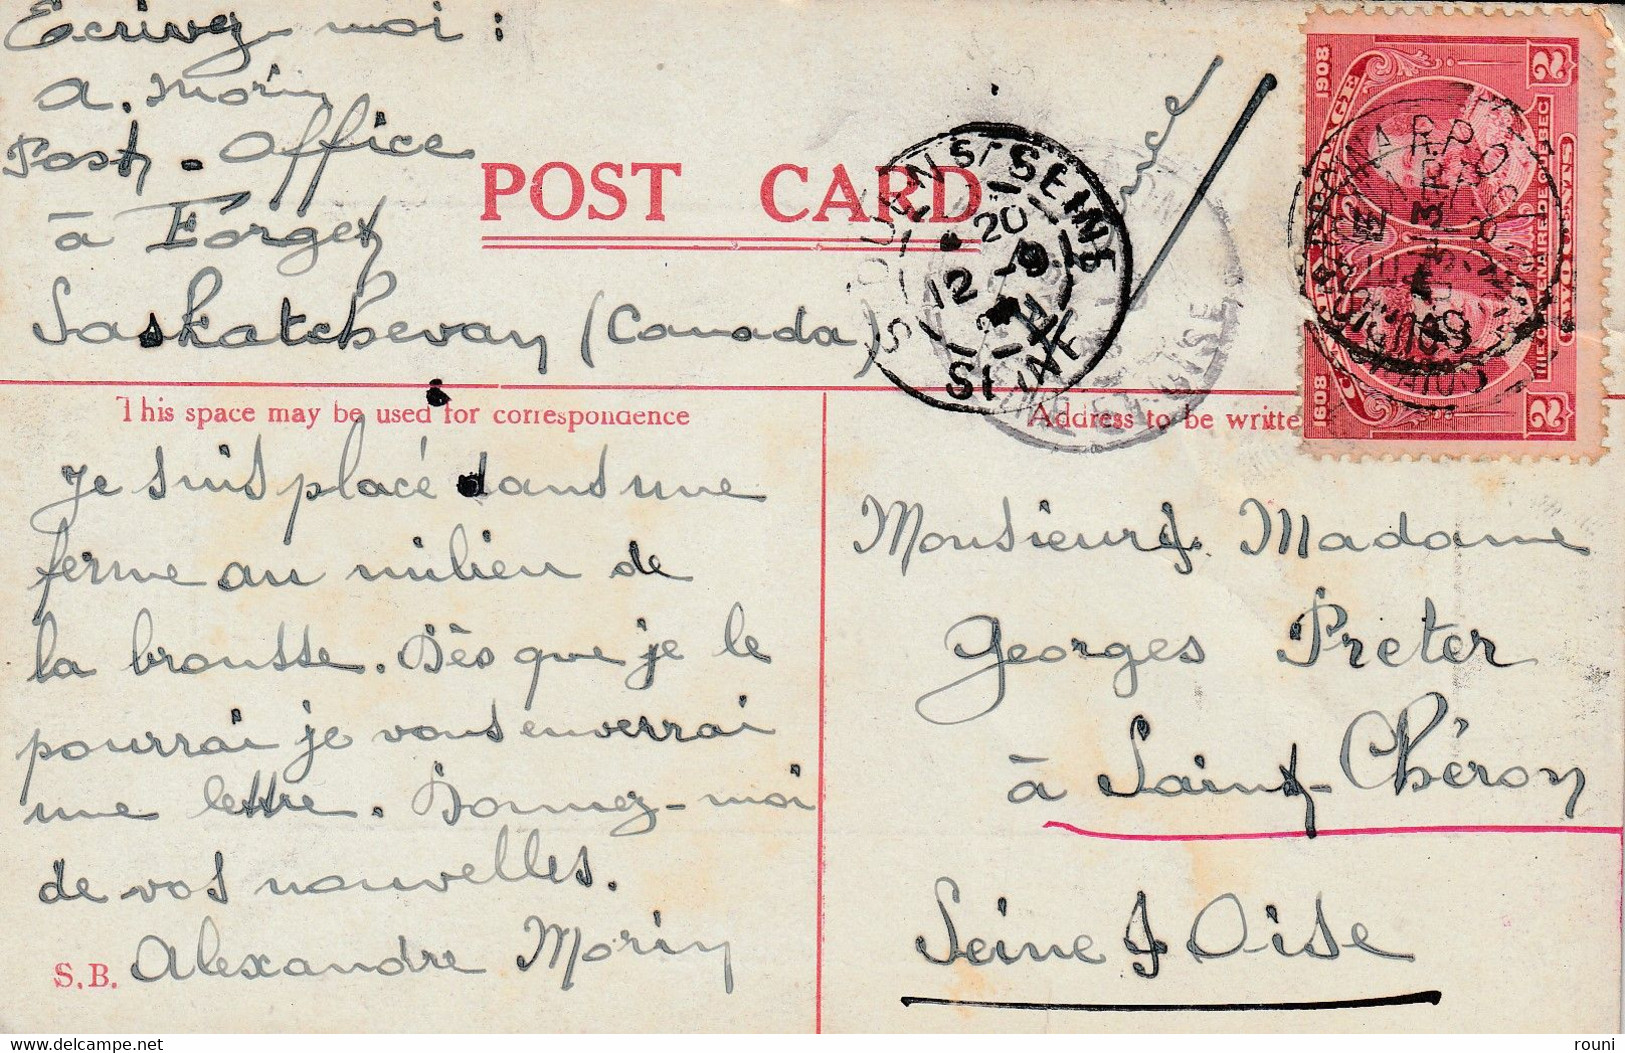 Ecrivez-moi :
A. Morin
Post-Office
à Forget
Saskatchevan (Canada)
POST CARD
This space may be used for correspondence
Address to be writte
Je suis placé dans une
ferme au milieu de
la brousse. Dès que je le
pourrai je vous enverrai
une lettre. Donnez-moi
de vos nouvelles.
Alexandre Morin
S.B.
Monsieur & Madame
Georges Preter
à Saint-Chéron
Seine & Oise
1908
1908
2
2
S/SEINE
20
12 -9
R.P.O.
rouni